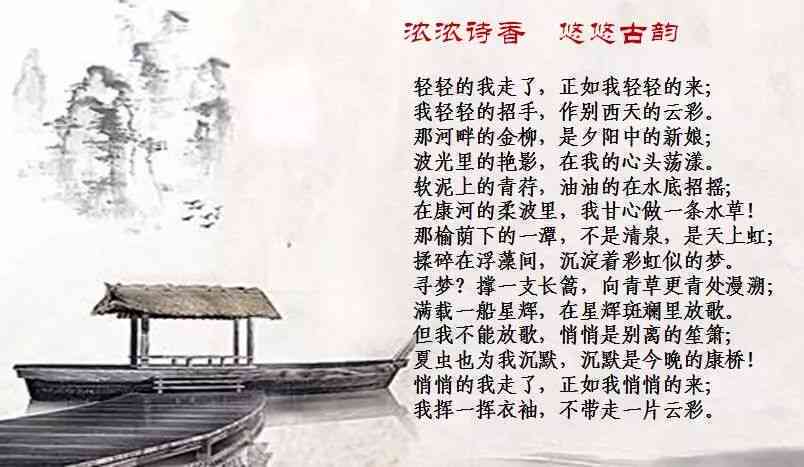 浓浓诗香 悠悠古韵
轻轻的我走了，正如我轻轻的来；
我轻轻的招手，作别西天的云彩。
那河畔的金柳，是夕阳中的新娘；
波光里的艳影，在我的心头荡漾。
软泥上的青荇，油油的在水底招摇；
在康河的柔波里，我甘心做一条水草！
那榆荫下的一潭，不是清泉，是天上虹；
揉碎在浮藻间，沉淀着彩虹似的梦。
寻梦？撑一支长篙，向青草更青处漫溯；
满载一船星辉，在星辉斑斓里放歌。
但我不能放歌，悄悄是别离的笙箫；
夏虫也为我沉默，沉默是今晚的康桥！
悄悄的我走了，正如我悄悄的来；
我挥一挥衣袖，不带走一片云彩。